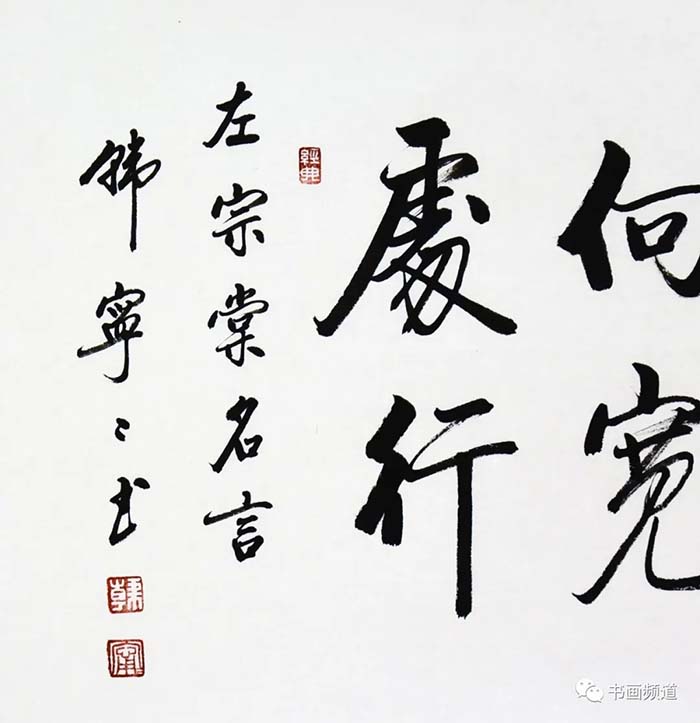 何宽
處行
左宗棠名言
韩寧々书
书画频道